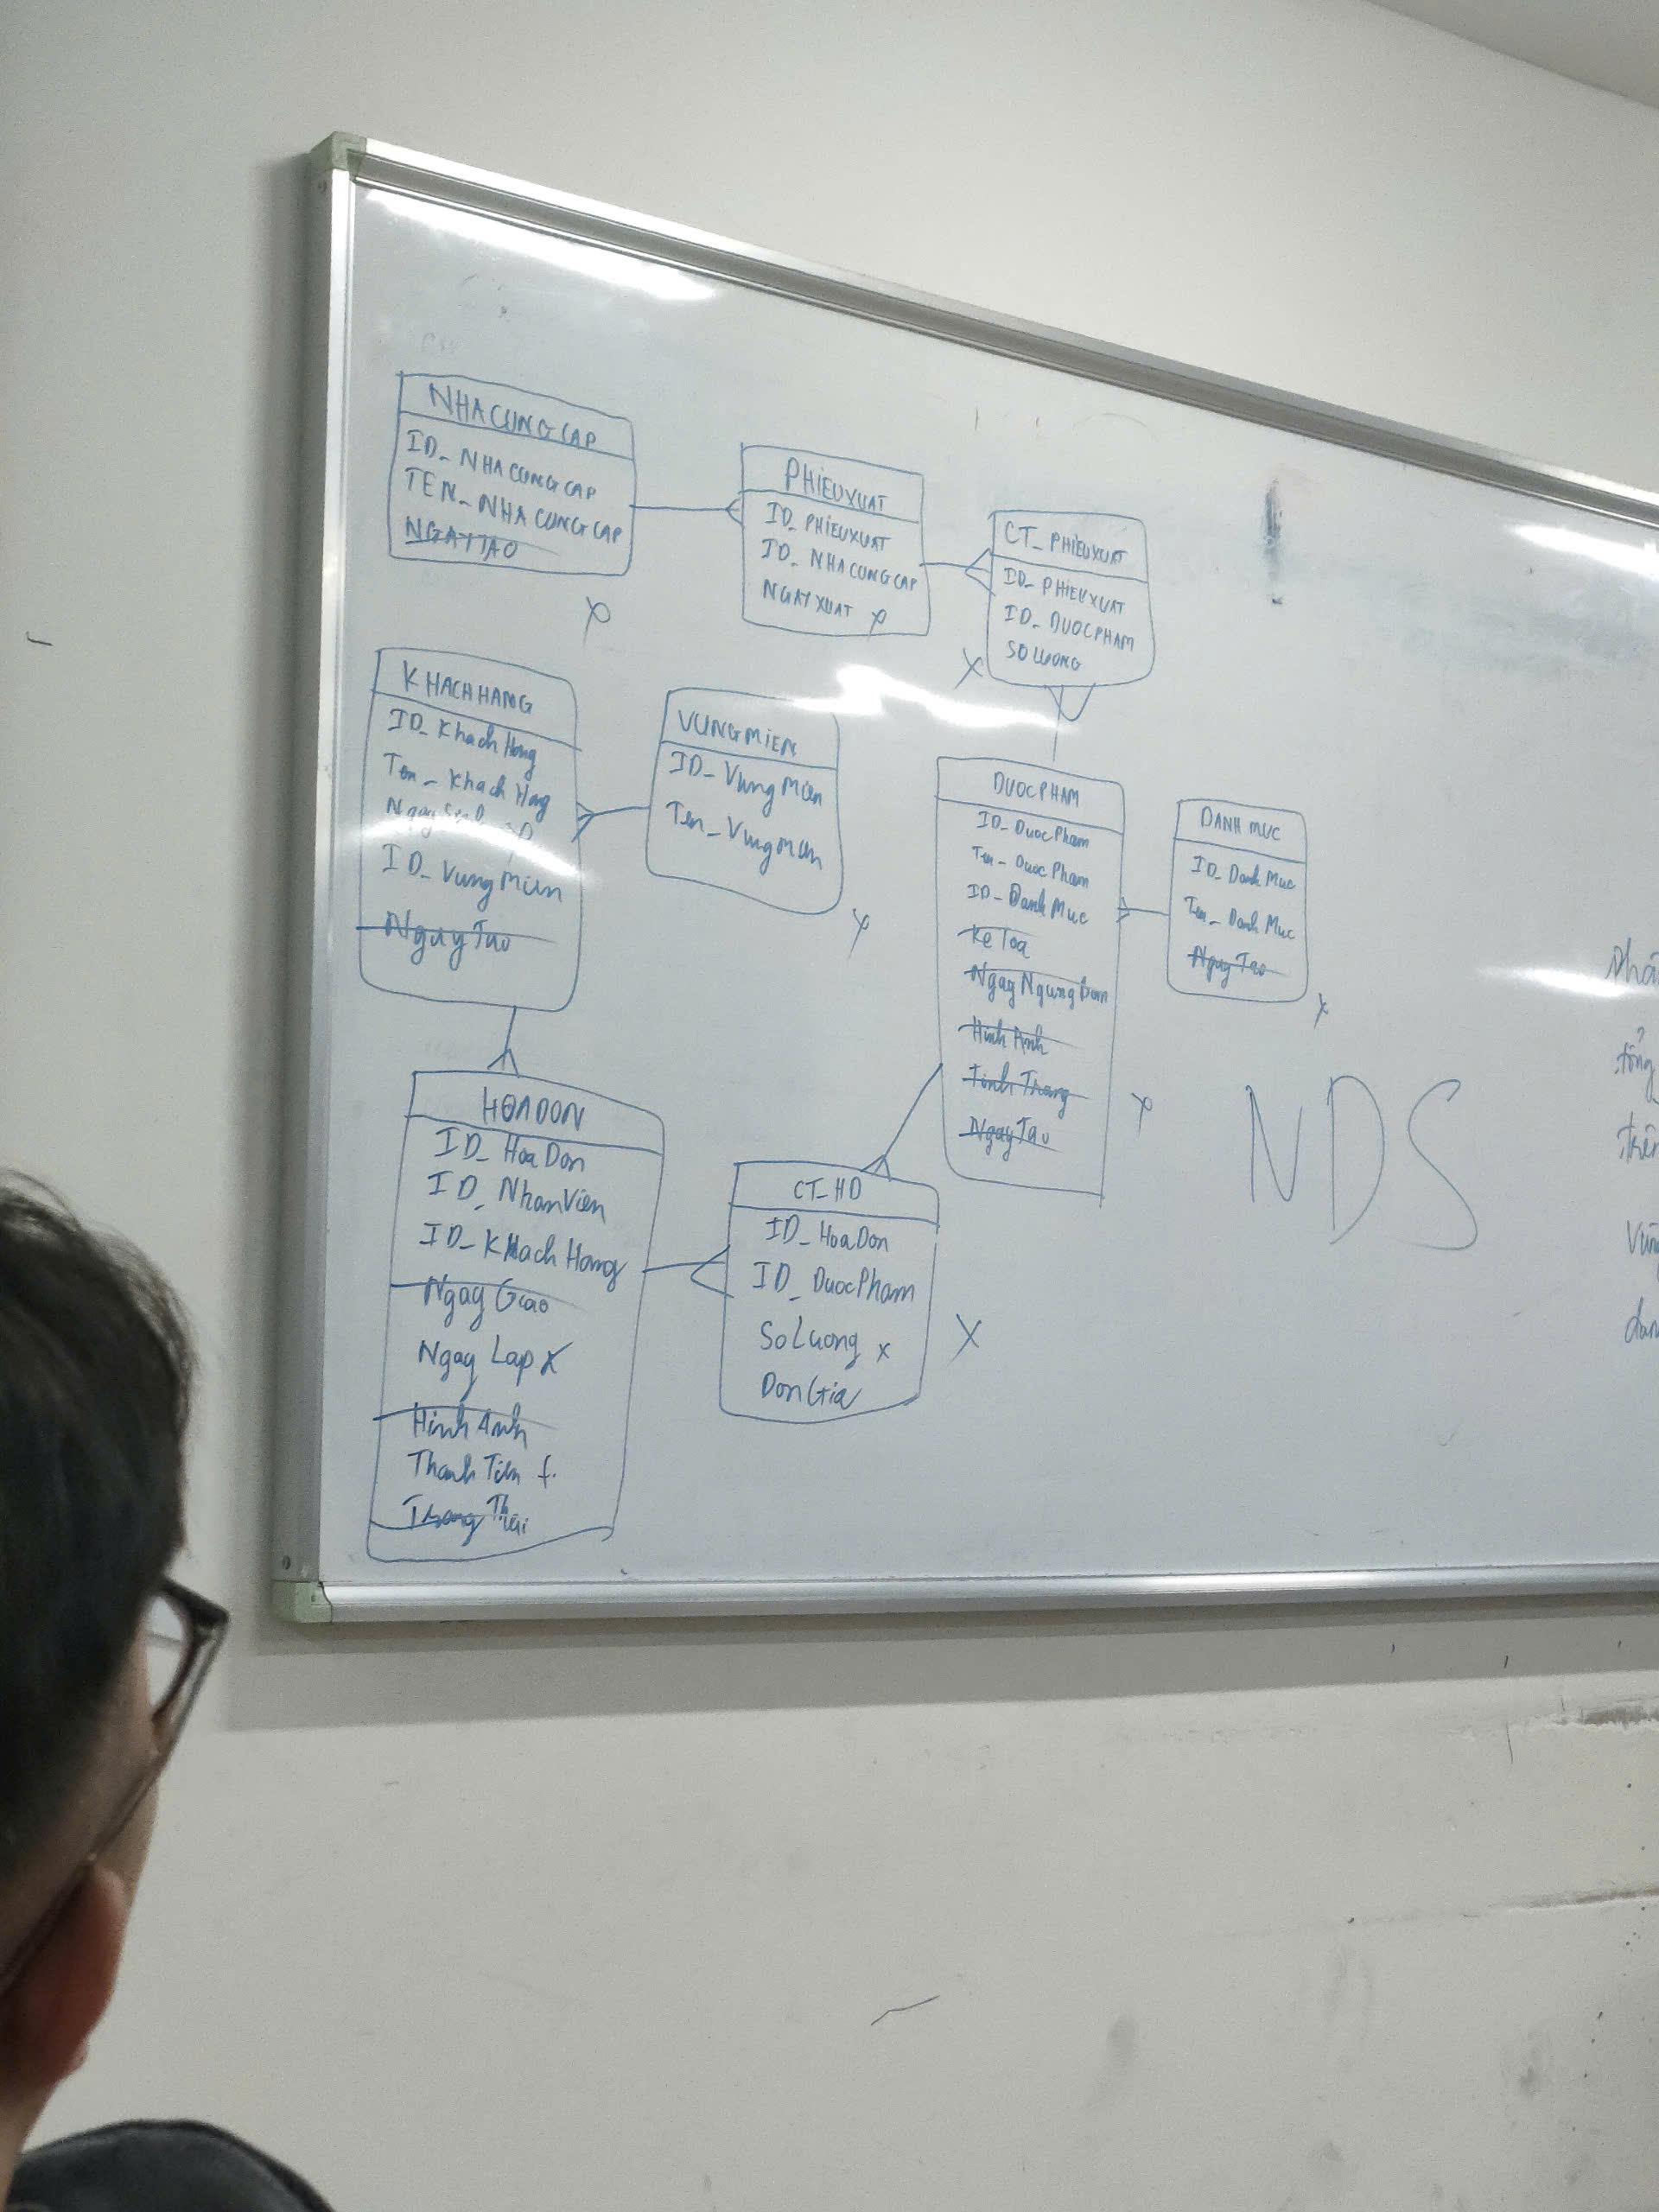 NHACUNGCAP
ID_NHACUNGCAP
TEN_NHACUNGCAP
NGAYTAO
PHIEUXUAT
ID_PHIEUXUAT
ID_NHACUNGCAP
NGAYXUAT
CT_PHIEUXUAT
ID_PHIEUXUAT
ID_DUOCPHAM
SOLUONG
KHACHHANG
ID_KhachHang
Ten_KhachHang
ID_VungMien
NgayTao
VUNGMIEN
ID_VungMien
Ten_VungMien
DUOCPHAM
ID_DuocPham
Ten_DuocPham
ID_DanhMuc
KeToa
NgayNgungBan
HinhAnh
TinhTrang
NgayTao
DANHMUC
ID_DanhMuc
Ten_DanhMuc
NgayTao
HOADON
ID_HoaDon
ID_NhanVien
ID_KhachHang
NgayGiao
NgayLap x
HinhAnh
ThanhTien
TrangThai
CT_HD
ID_HoaDon
ID_DuocPham
SoLuong x
DonGia
NDS